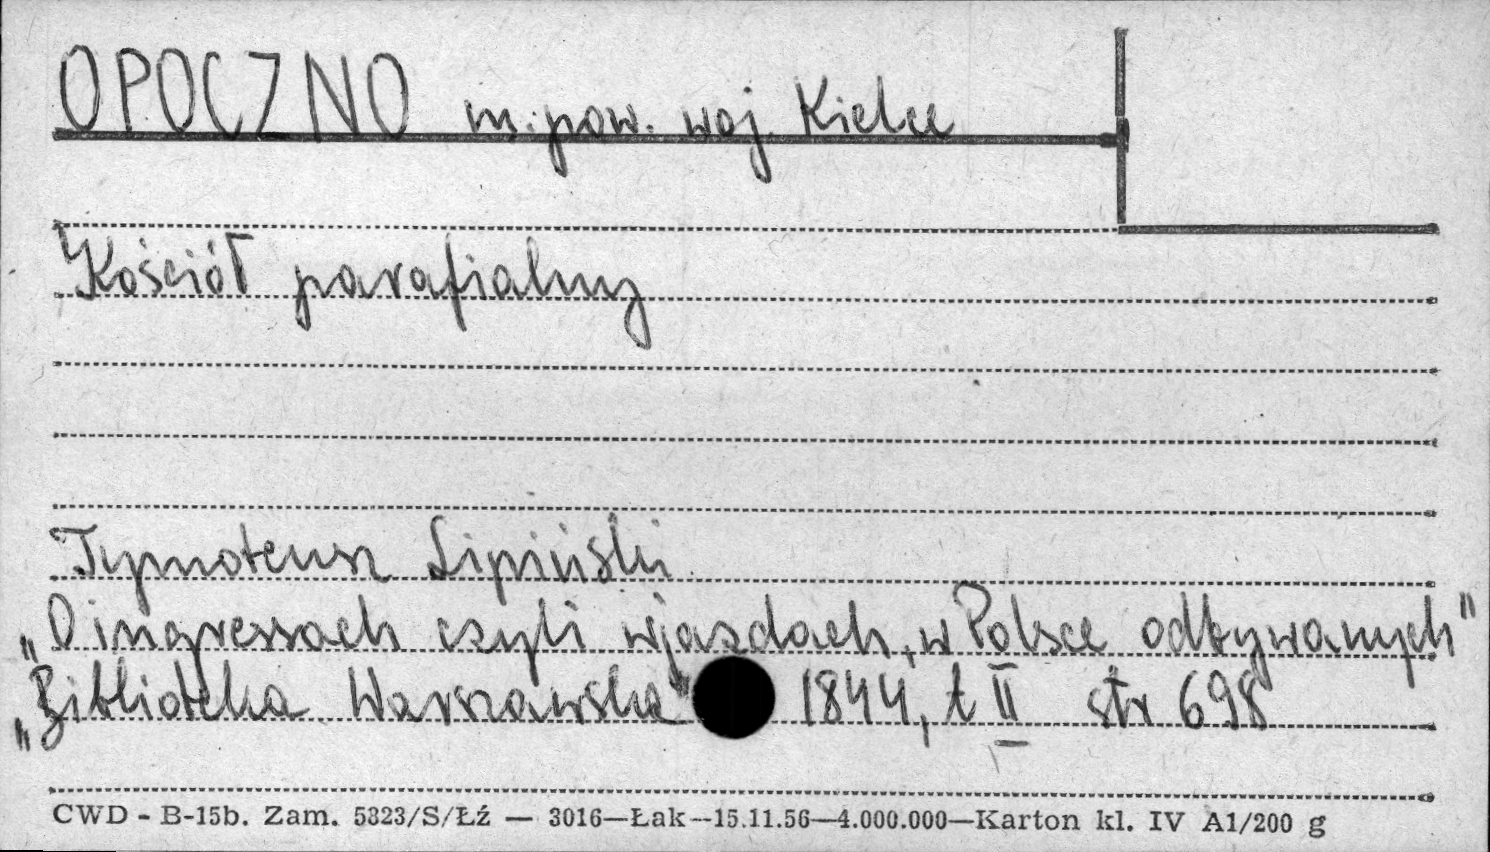 OPOCZNO m. pow. woj. Kielce
Kościół parafialny
Tymoteusz Lipiński
„O ingressach czyli wjazdach, w Polsce odbywanych"
„Biblioteka Warszawska" 1844, t II str 698
CWD - B-15b. Zam. 5323/S/Łź — 3016—Łak--15.11.56—4.000.000—Karton kl. IV A1/200 g